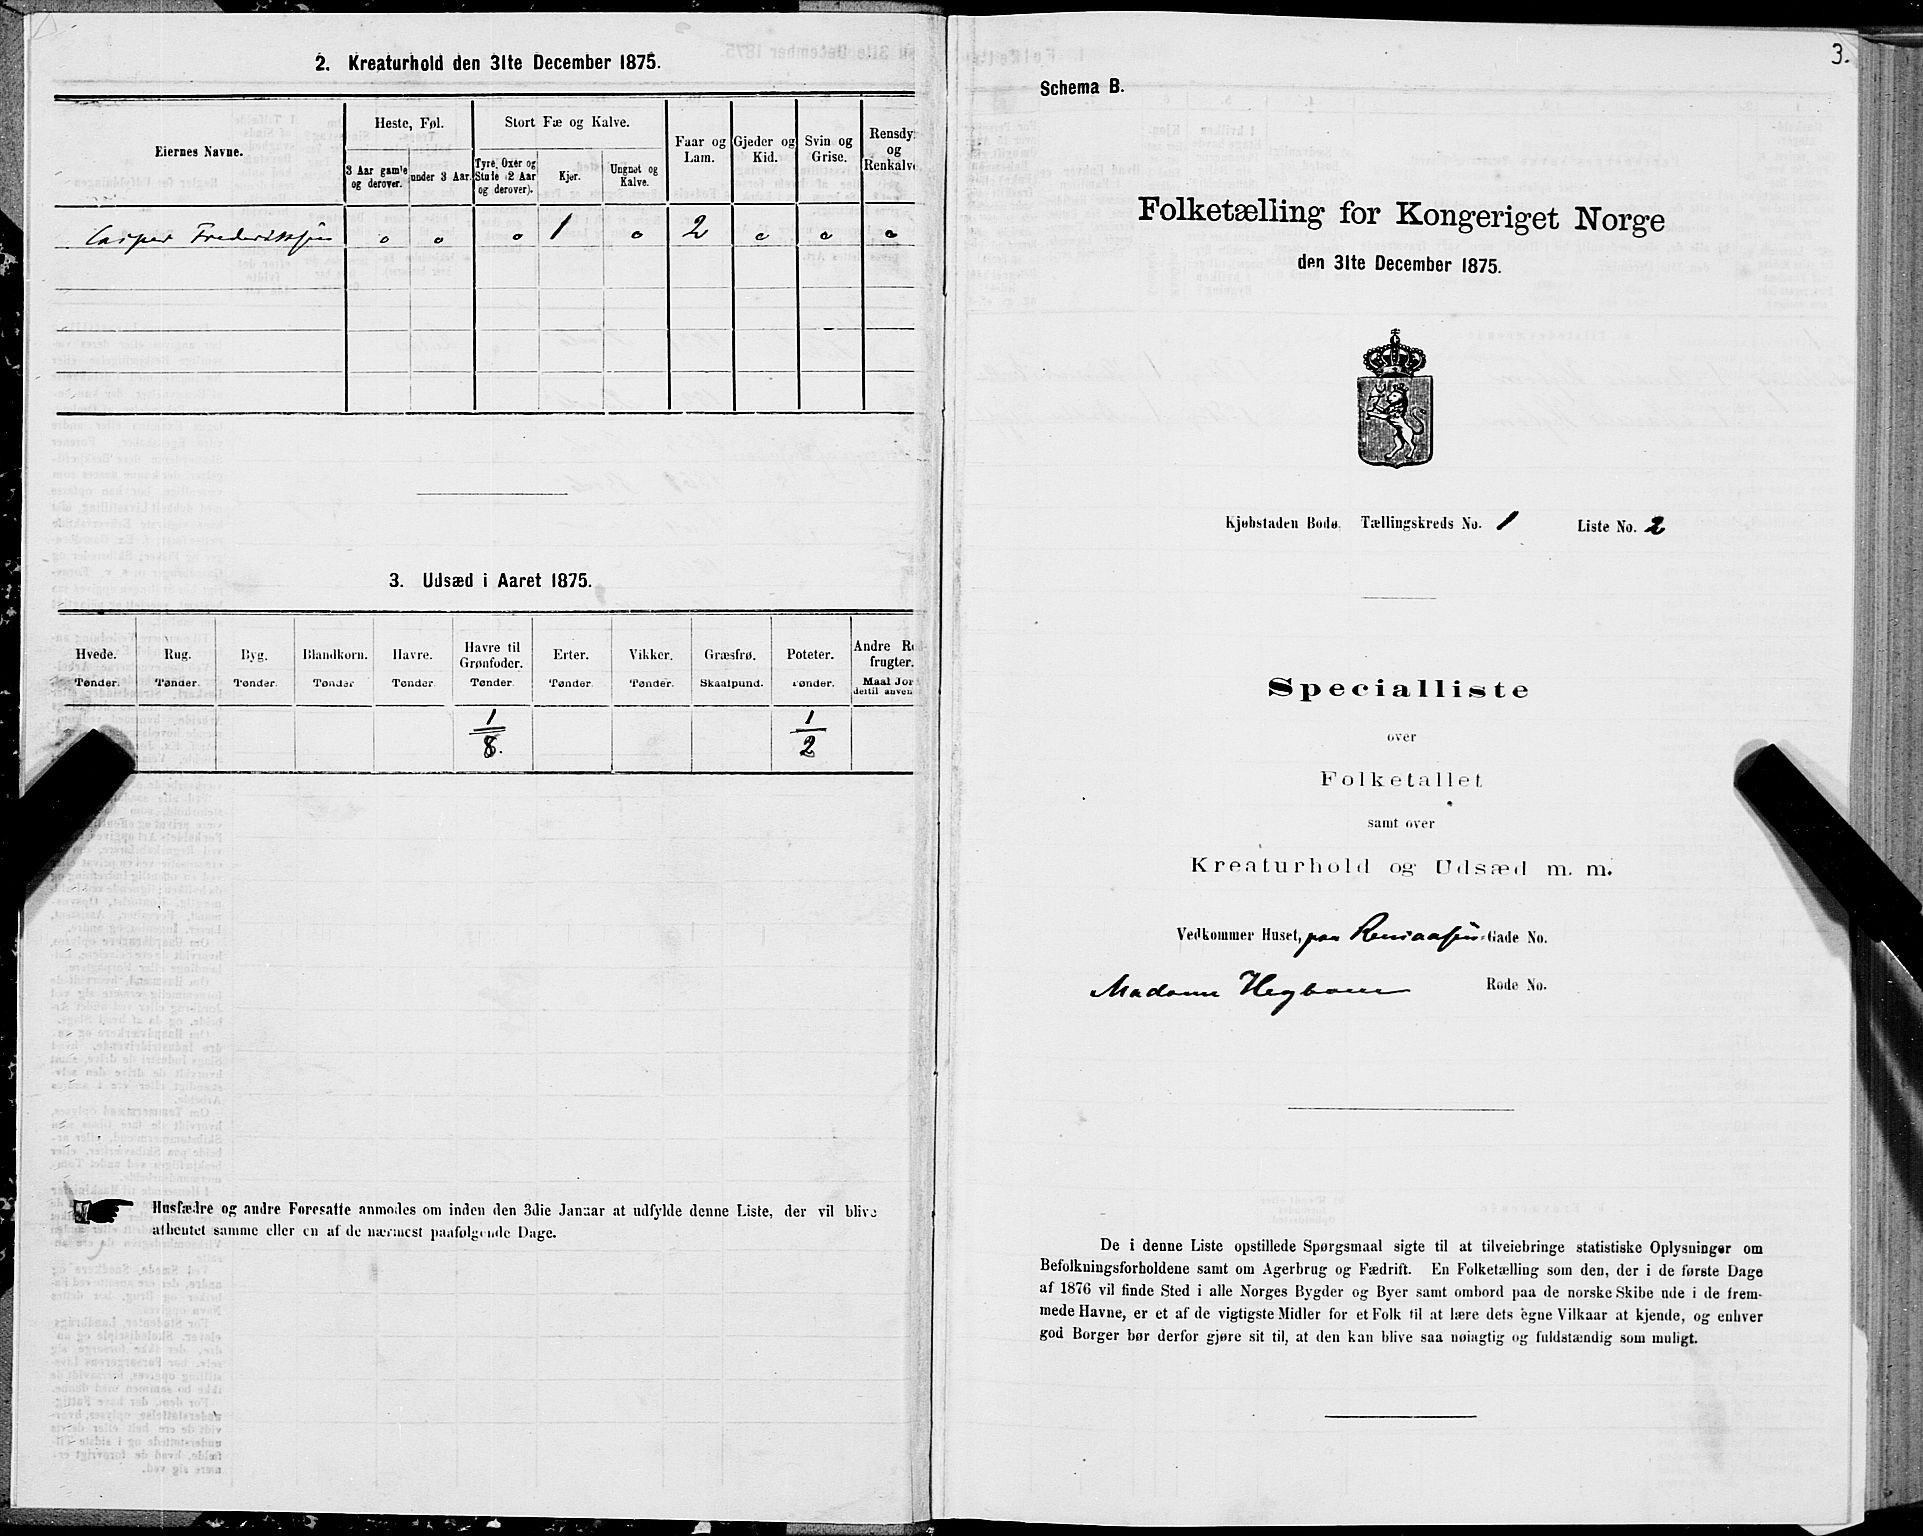 2. Kreaturhold den 31te December 1875.
Eiernes Navne.
Heste, Føl.
Stort Fæ og Kalve.
Faar og Lam.
Gjeder og Kid.
Svin og Grise.
Rensdyr og Renkalve
3 Aar gamle og derover.
under 3 Aar.
Tyre, Oxer og Stude (2 Aar og derover).
Kjør.
Ungnøt og Kalve.
Casper Frederiksen o o o 1 o 2 o o o
3. Udsæd i Aaret 1875.
Hvede. Rug. Byg. Blandkorn. Havre. Havre til Grønfoder. Erter. Vikker. Græsfrø. Poteter. Andre R frugter.
Tønder. Tønder. Tønder. Tønder Tønder. Tønder. Tønder. Tønder. Skaalpund. Tønder. Maal Jor dertil anven
1/8. 1/2
Husfædre og andre Foresatte anmodes om inden den 3die Januar at udfylde denne Liste, der vil blive
afhentet samme eller en af de nærmest paafølgende Dage.
3.
Schema B.
Folketælling for Kongeriget Norge
den 31te December 1875.
Kjøbstaden Bodø. Tællingskreds No. 1 Liste No. 2
Specialliste
over
Folketallet
samt over
Kreaturhold og Udsæd m. m.
Vedkommer Huset, paa Rensaasen Gade No.
Madame Hegbom Rode No.
De i denne Liste opstillede Spørgsmaal sigte til at tilveiebringe statistiske Oplysninger om
Befolkningsforholdene samt om Agerbrug og Fædrift. En Folketælling som den, der i de første Dage
af 1876 vil finde Sted i alle Norges Bygder og Byer samt ombord paa de norske Skibe ude i de frem-
mede Havne, er et af de vigtigste Midler for et Folk til at lære dets egne Vilkaar at kjende, og enhver
god Borger bør derfor gjøre sit til, at den kan blive saa nøiagtig og fuldstændig som muligt.